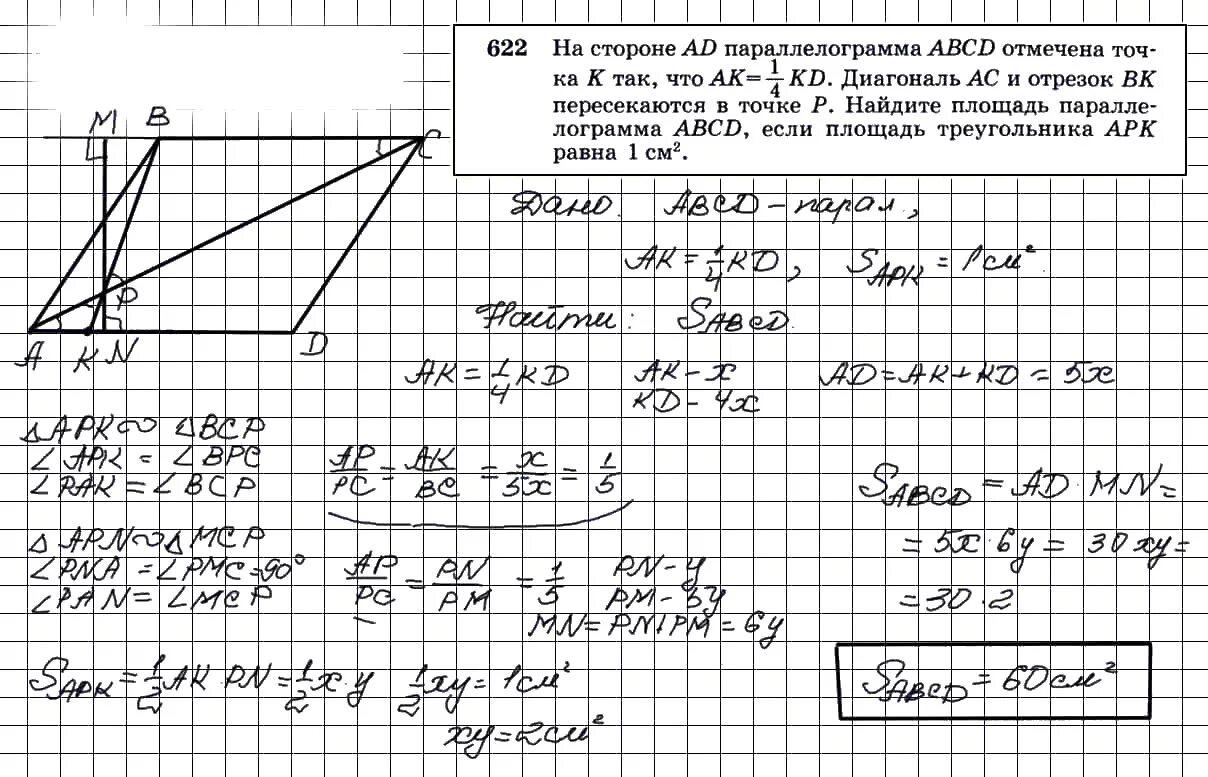 622 На стороне AD параллелограмма ABCD отмечена точ-
ка K так, что AK=1/4 KD. Диагональ AC и отрезок BK
пересекаются в точке P. Найдите площадь паралле-
лограмма ABCD, если площадь треугольника APK
равна 1 см².
M B C
P
A K N D
Дано. ABCD – парал.,
AK = 1/4 KD, S_APK = 1 см².
Найти: S_ABCD.
AK = 1/4 KD AK – x AD = AK + KD = 5x
KD – 4x
△APK ∾ △BCP
∠APK = ∠BPC
∠PAK = ∠BCP
AP/PC = AK/BC = x/5x = 1/5
△APN ∾ △MCP
∠PNA = ∠PMC = 90°
∠PAN = ∠MCP
AP/PC = PN/PM = 1/5 PN – y
PM – 5y
MN = PN + PM = 6y
S_APK = 1/2 AK · PN = 1/2 x · y 1/2 xy = 1 см²
xy = 2 см²
S_ABCD = AD · MN =
= 5x · 6y = 30xy =
= 30 · 2
S_ABCD = 60 см²